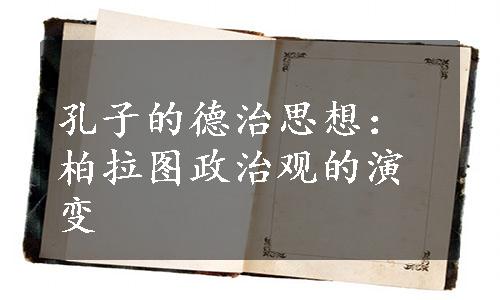 孔子的德治思想：
柏拉图政治观的演
变